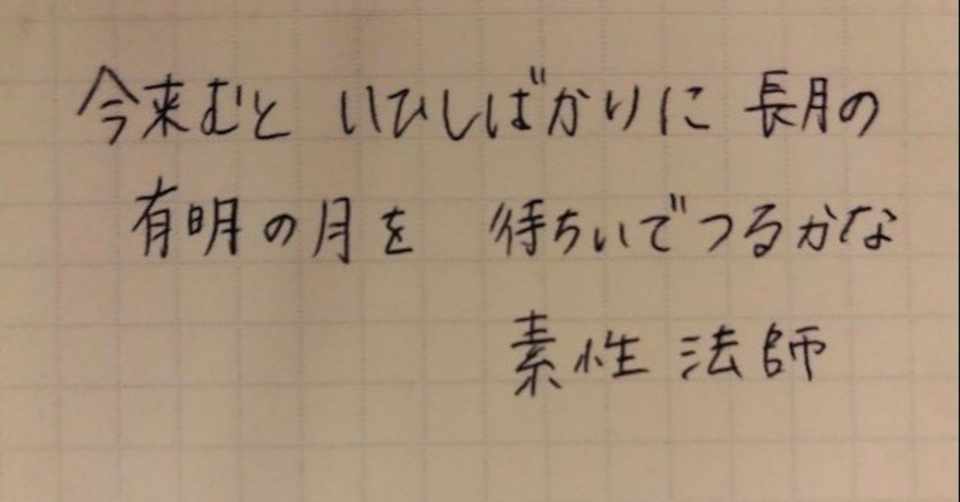 今来むと いひしばかりに 長月の
有明の月を 待ちいでつるかな
素性法師